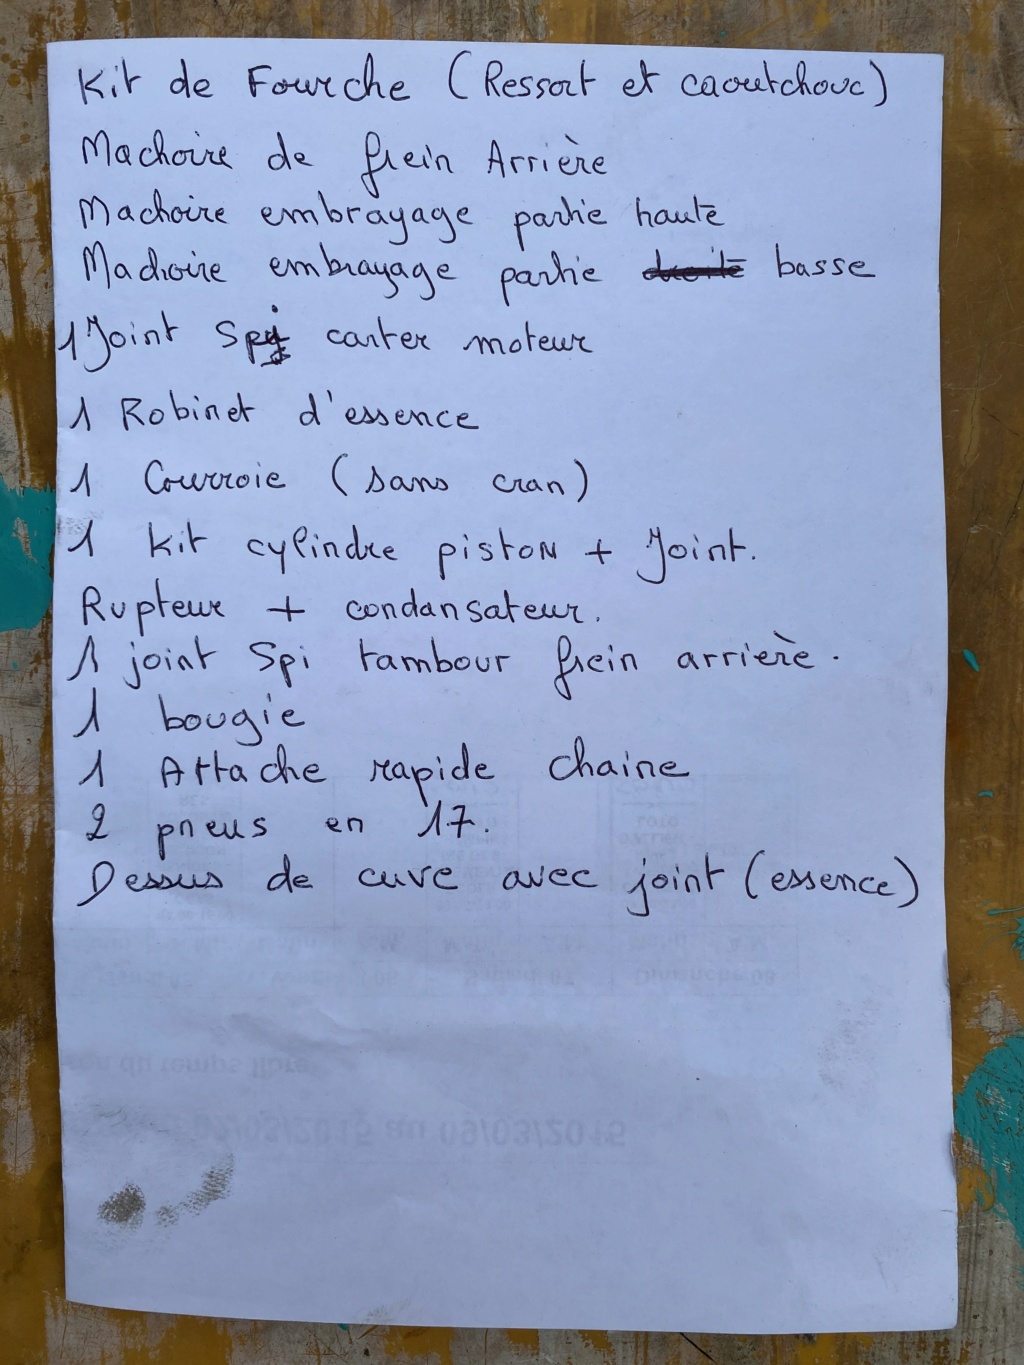 Kit de Fourche (Ressort et caoutchouc)
Machoire de frein Arrière
Machoire embrayage partie haute
Machoire embrayage partie droite basse
1 Joint Spi carter moteur
1 Robinet d'essence
1 Courroie (sans cran)
1 Kit cylindre piston + Joint.
Rupteur + condansateur.
1 joint Spi tambour frein arrière.
1 bougie
1 Attache rapide chaine
2 pneus en 17.
Dessus de cuve avec joint (essence)
Dimanche 08
du temps libre
/03/2015 au 09/03/2015